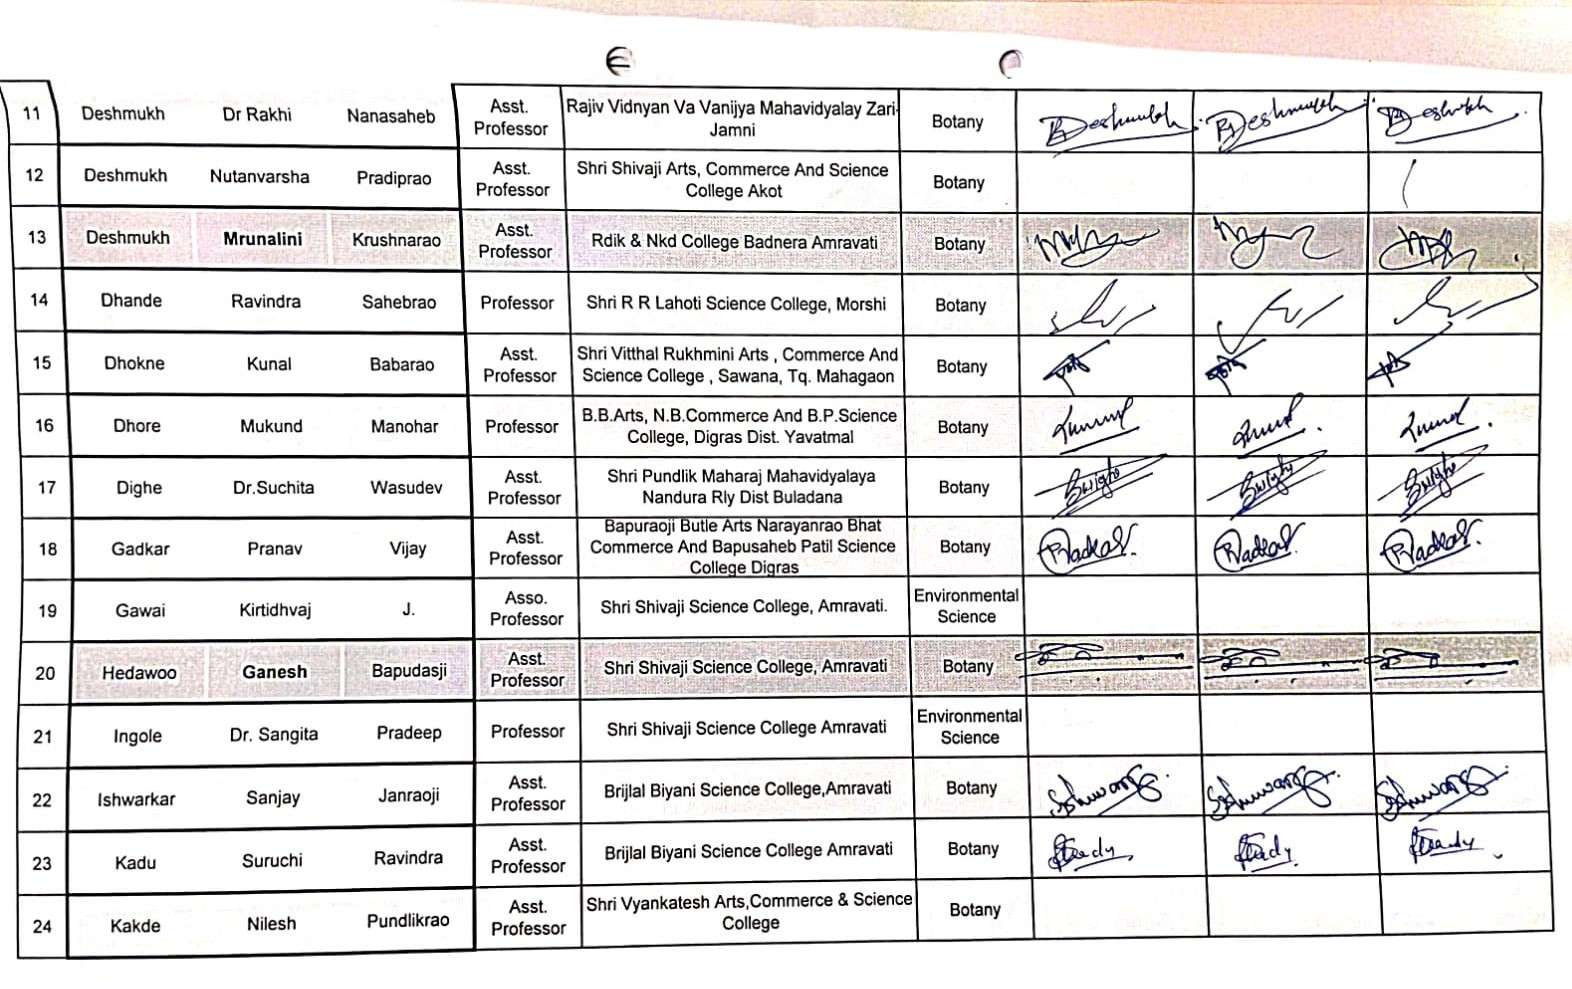 11 Deshmukh Dr Rakhi Nanasaheb Asst. Professor Rajiv Vidnyan Va Vanijya Mahavidyalay Zari-Jamni Botany
12 Deshmukh Nutanvarsha Pradiprao Asst. Professor Shri Shivaji Arts, Commerce And Science College Akot Botany
13 Deshmukh Mrunalini Krushnarao Asst. Professor Rdik & Nkd College Badnera Amravati Botany
14 Dhande Ravindra Sahebrao Professor Shri R R Lahoti Science College, Morshi Botany
15 Dhokne Kunal Babarao Asst. Professor Shri Vitthal Rukhmini Arts , Commerce And Science College , Sawana, Tq. Mahagaon Botany
16 Dhore Mukund Manohar Professor B.B.Arts, N.B.Commerce And B.P.Science College, Digras Dist. Yavatmal Botany
17 Dighe Dr.Suchita Wasudev Asst. Professor Shri Pundlik Maharaj Mahavidyalaya Nandura Rly Dist Buladana Botany
18 Gadkar Pranav Vijay Asst. Professor Bapuraoji Butle Arts Narayanrao Bhat Commerce And Bapusaheb Patil Science College Digras Botany
19 Gawai Kirtidhvaj J. Asso. Professor Shri Shivaji Science College, Amravati. Environmental Science
20 Hedawoo Ganesh Bapudasji Asst. Professor Shri Shivaji Science College, Amravati Botany
21 Ingole Dr. Sangita Pradeep Professor Shri Shivaji Science College Amravati Environmental Science
22 Ishwarkar Sanjay Janraoji Asst. Professor Brijlal Biyani Science College,Amravati Botany
23 Kadu Suruchi Ravindra Asst. Professor Brijlal Biyani Science College Amravati Botany
24 Kakde Nilesh Pundlikrao Asst. Professor Shri Vyankatesh Arts,Commerce & Science College Botany